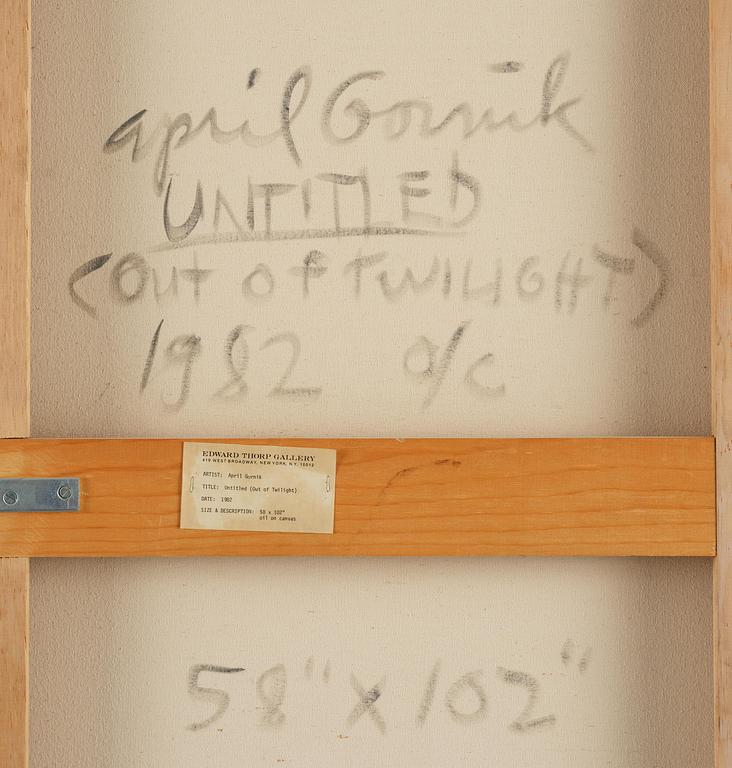 april Gornik
UNTITLED
(OUT OF TWILIGHT)
1982 o/c
EDWARD THORP GALLERY
419 WEST BROADWAY, NEW YORK, N.Y. 10012
ARTIST: April Gornik
TITLE: Untitled (Out of Twilight)
DATE: 1982
SIZE & DESCRIPTION: 58 x 102"
oil on canvas
58" x 102"